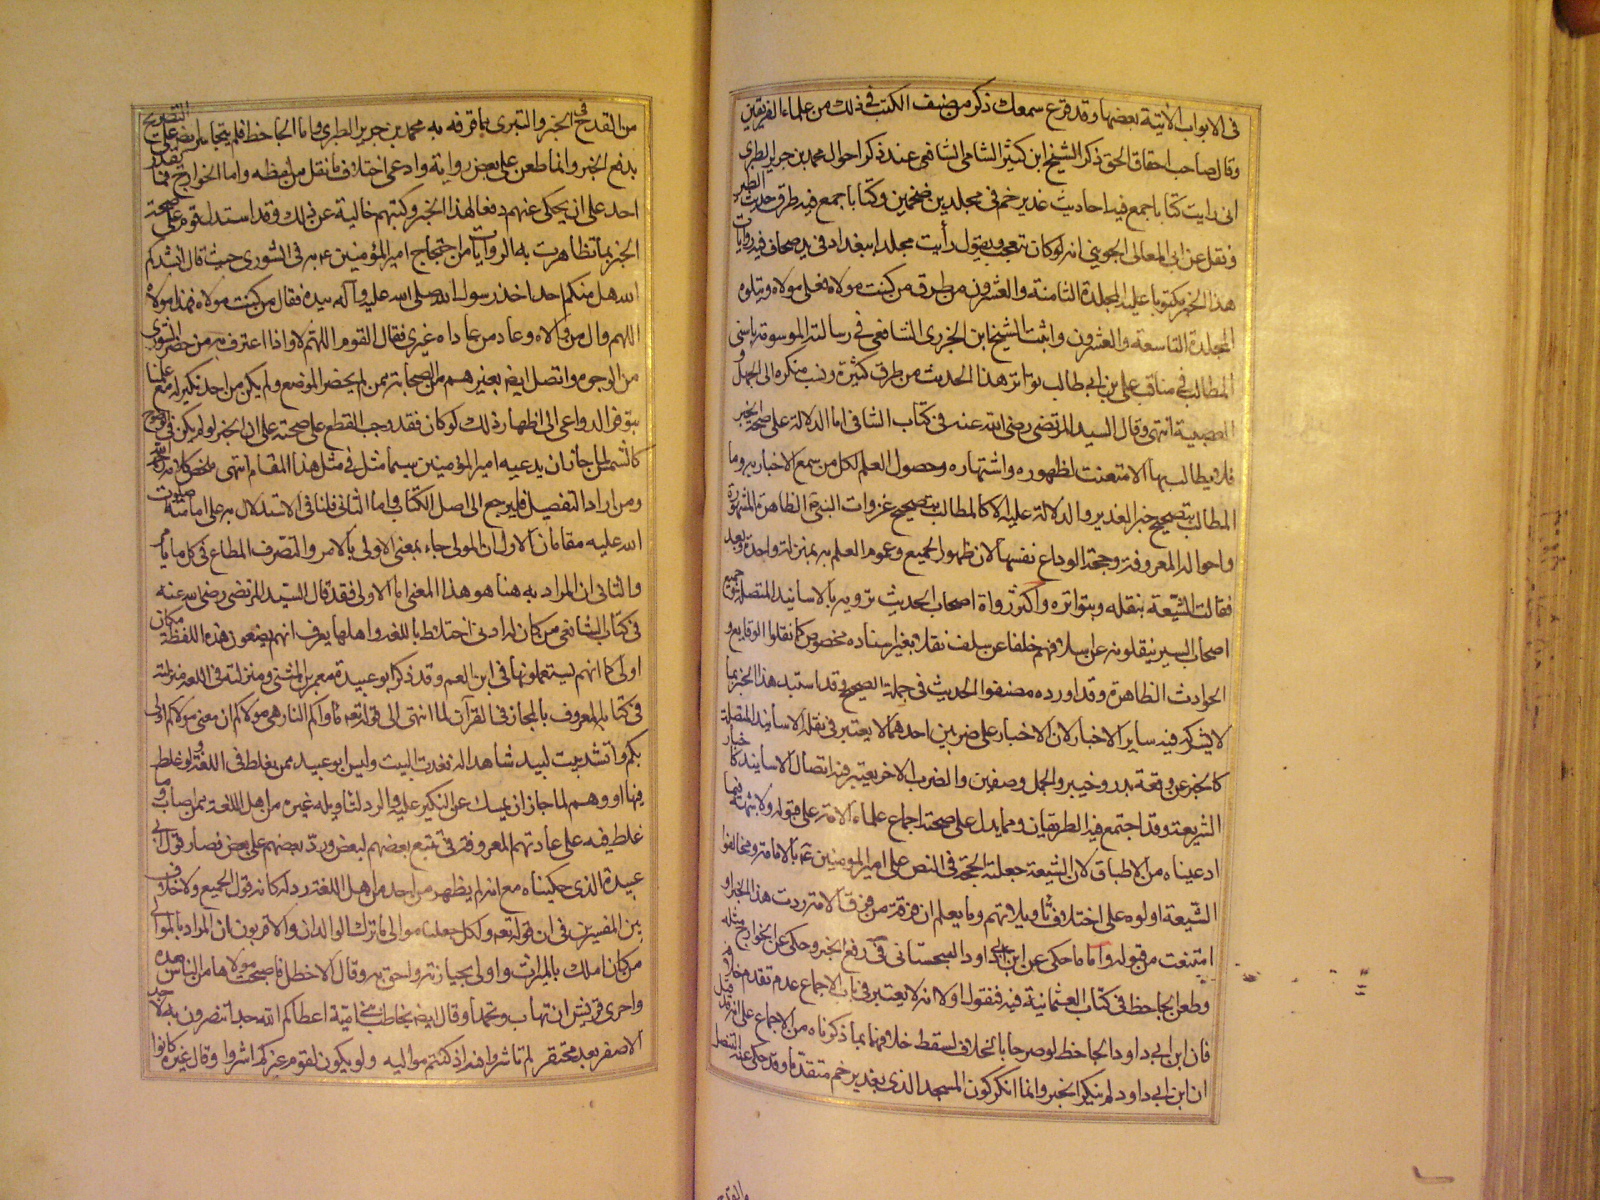 فى الابواب الآتية بعضها وقد قرع سمعك ذكر مصنف الكتب فى ذلك من علماء الفريقين
وقال صاحب احقاق الحق ذكر الشيخ ابن كثير الشامى الشافعى عند ذكر احوال محمد بن جرير الطبرى
انى رايت كتابا جمع فيه احاديث غدير خم فى مجلدين ضخمين وكتابا جمع فيه طرق حديث الطير
ونقل عن ابى المعالى الجوينى انه كان يتعجب ويقول رأيت مجلدا ببغداد فى يد صحاف فيه روايات
هذا الخبر مكتوبا عليه المجلدة الثامنة والعشرون من طرق من كنت مولاه فعلى مولاه ويتلوه
المجلدة التاسعة والعشرون واثبت الشيخ ابن الجزرى الشافعى فى رسالته الموسومة باسنى
المطالب فى مناقب على بن ابى طالب تواتر هذا الحديث من طرق كثيرة ونسب منكره الى الجهل و
العصبية انتهى وقال السيد المرتضى رضى الله عنه فى كتاب الشافى اما الدلالة على صحة الخبر
فلا يطالب بها الا متعنت لظهوره واشتهاره وحصول العلم لكل من سمع الاخبار به وما
المطالب بتصحيح خبر الغدير والدلالة عليه الا كالمطالب بتصحيح غزوات النبى الظاهرة المشهورة
واحواله المعروفة وحجة الوداع نفسها لان ظهور الجميع وعموم العلم به بمنزلة واحدة وبعد
فقالت الشيعة بنقله وبتواتره واكثر رواة اصحاب الحديث ترويه بالاسانيد المتصلة وجميع
اصحاب السير ينقلونه عن اسلافهم خلفا عن سلف نقلا بغير اسناده مخصوص كما نقلوا الوقايع و
الحوادث الظاهرة وقد اورده مصنفوا الحديث فى جملة الصحيح وقد استبد هذا الخبر بما
لا يشركه فيه ساير الاخبار لان الاخبار على ضربين احدهما لا يعتبر فى نقله الاسانيد المتصلة
كالخبر عن وقعة بدر وخيبر والجمل وصفين والضرب الاخر يعتبر فيه اتصال الاسانيد كاخبار
الشريعة وقد اجتمع فيه الطريقان ومما يدل على صحته اجماع علماء الامة على قبوله ولا شبهة فيما
ادعيناه من الاطباق لان الشيعة جعلته الحجة فى النص على امير المومنين ع بالامامة ومخالفوا
الشيعة اولوه على اختلاف تأويلاتهم وما يعلم ان فرقة من فرق الامة ردت هذا الخبر او
امتنعت من قبوله واما ما حكى عن ابن ابى داود السجستانى فى دفع الخبر وحكى عن الخوارج مثله
وطعن الجاحظ فى كتاب العثمانية فيه فنقول اولا انه لا يعتبر فى باب الاجماع عدم تقدم خلاف
فان ابن ابى داود الجاحظ لو صرحا بالخلاف لسقط خلافهما بما ذكرناه من الاجماع على انه قد قيل
ان ابن ابى داود لم ينكر الخبر وانما انكر كون المسجد الذى بغدير خم متقدما وقد حكى عنه التنصل
من القدح فى الخبر والتبرى مما قرفه به محمد بن جرير الطبرى واما الجاحظ فلم يتجاسر ايضا على التصريح
بدفع الخبر وانما طعن على بعض رواية وادعى اختلاف ما نقل من لفظه واما الخوارج فما يقدر
احد على ان يحكى عنهم دفعا لهذا الخبر وكتبهم خالية عن ذلك وقد استدل قوم على صحة
الخبر بما تظاهرت به الروايات من احتجاج امير المؤمنين ع به فى الشورى حيث قال انشدكم
الله هل منكم احد اخذ رسول الله صلى الله عليه وآله بيده فقال من كنت مولاه فهذا مولاه
اللهم وال من والاه وعاد من عاداه غيرى فقال القوم اللهم لا واذا اعترف به من حضر الشورى
من الوجوه واتصل ايضا بغيرهم من الصحابة ممن لم يحضر الموضع ولم يكن من احد نكير له مع علمنا
بتوفر الدواعى الى اظهار ذلك لو كان فقد وجب القطع على صحته على ان الخبر لو لم يكن فى الوضوح
كالشمس لما جاز ان يدعيه امير المؤمنين سيما مثل فى مثل هذا المقام انتهى ملخص كلامه
ومن اراد التفصيل فليرجع الى اصل الكتاب واما الثانى فلنا فى الاستدلال به على امامته صلوات
الله عليه مقامان الاول ان المولى جاء بمعنى الاولى بالامر والمتصرف المطاع فى كل ما يأمر
والثانى ان المراد به هنا هو هذا المعنى اما الاول فقد قال السيد المرتضى رضى الله عنه
فى كتاب الشافى من كان له ادنى اختلاط باللغة واهلها يعرف انهم يضعون هذه اللفظة مكان
اولى كما انهم يستعملونها فى ابن العم وقد ذكر ابو عبيدة معمر بن المثنى ومنزلته فى اللغة منزلته
فى كتابه المعروف بالمجاز فى القرآن لما انتهى الى قوله تعه مأواكم النار هى مولاكم ان معنى مولاكم اولى
بكم وانشد بيت لبيد شاهدا له فغدت البيت وليس ابو عبيدة ممن يغلط فى اللغة ولو غلط
فيها او وهم لما جاز ان يمسك عن النكير عليه والرد لتأويله غيره من اهل اللغة ممن اصاب وما
غلط فيه على عادتهم المعروفة فى تتبع بعضهم لبعض ورد بعضهم على بعض فصار قول ابى
عبيدة الذى حكيناه مع انه لم يظهر من احد من اهل اللغة رد له كانه قول الجميع ولا خلاف
بين المفسرين فى ان قوله تعه ولكل جعلنا موالى مما ترك الوالدان والاقربون ان المراد بالموالى
من كان املك بالميراث واولى بحيازته واحق به وقال الاخطل فاصبحت مولاها من الناس بعده
واحرى قريش ان تهاب وتحمدا وقال ايضا يخاطب بنى امية اعطاكم الله جدا تنصرون به لا جد
الا صغير بعد محتقر لم تاشروا فيه اذ كنتم مواليه ولو يكون لقوم غيركم اشروا وقال غيره كانوا